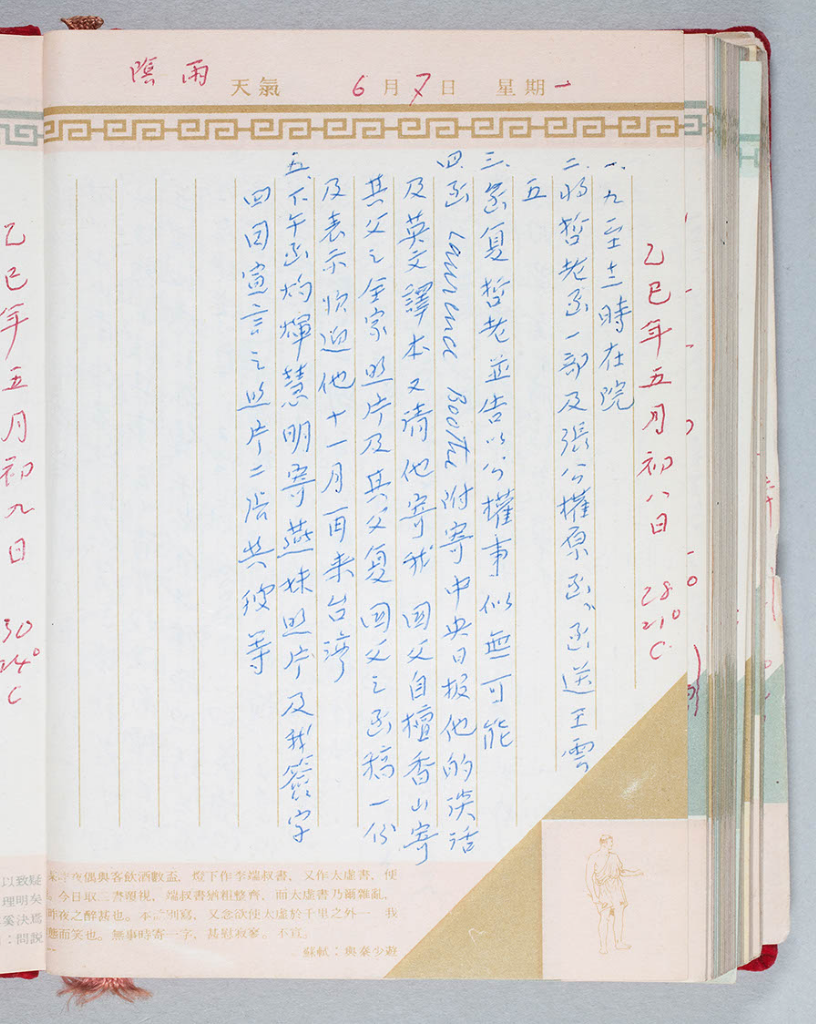 陰雨 天氣 6月7日 星期一
乙巳年五月初八日 28 21° C
一、九至十二時在院
二、將哲老函一部及張公權原函,函送王雲
五
三、函复哲老並告以公權事似無可能
四、函 Laurence Boothe 附寄中央日報他的談話
及英文譯本又請他寄我 國父自檀香山寄
其父之全家照片及其父复 國父之函稿一份
及表示欢迎他十一月再来台湾
五、下午函灼煇慧明寄燕妹照片及我簽字
四国宣言之照片二張共彼等
昨夜偶與客飲酒數盃,燈下作李端叔書,又作太虛書,便
今日取二書覆視,端叔書猶粗整齊,而太虛書乃爾雜亂,
昨夜之醉甚也。本 別寫,又念欲使太虛於千里之外一 我
態而笑也。無事時寄一字,甚慰寂寥。不宣。
蘇軾:與秦少游
乙巳年五月初九日 30 24° C
以致疑
理明矣
決焉
:問説